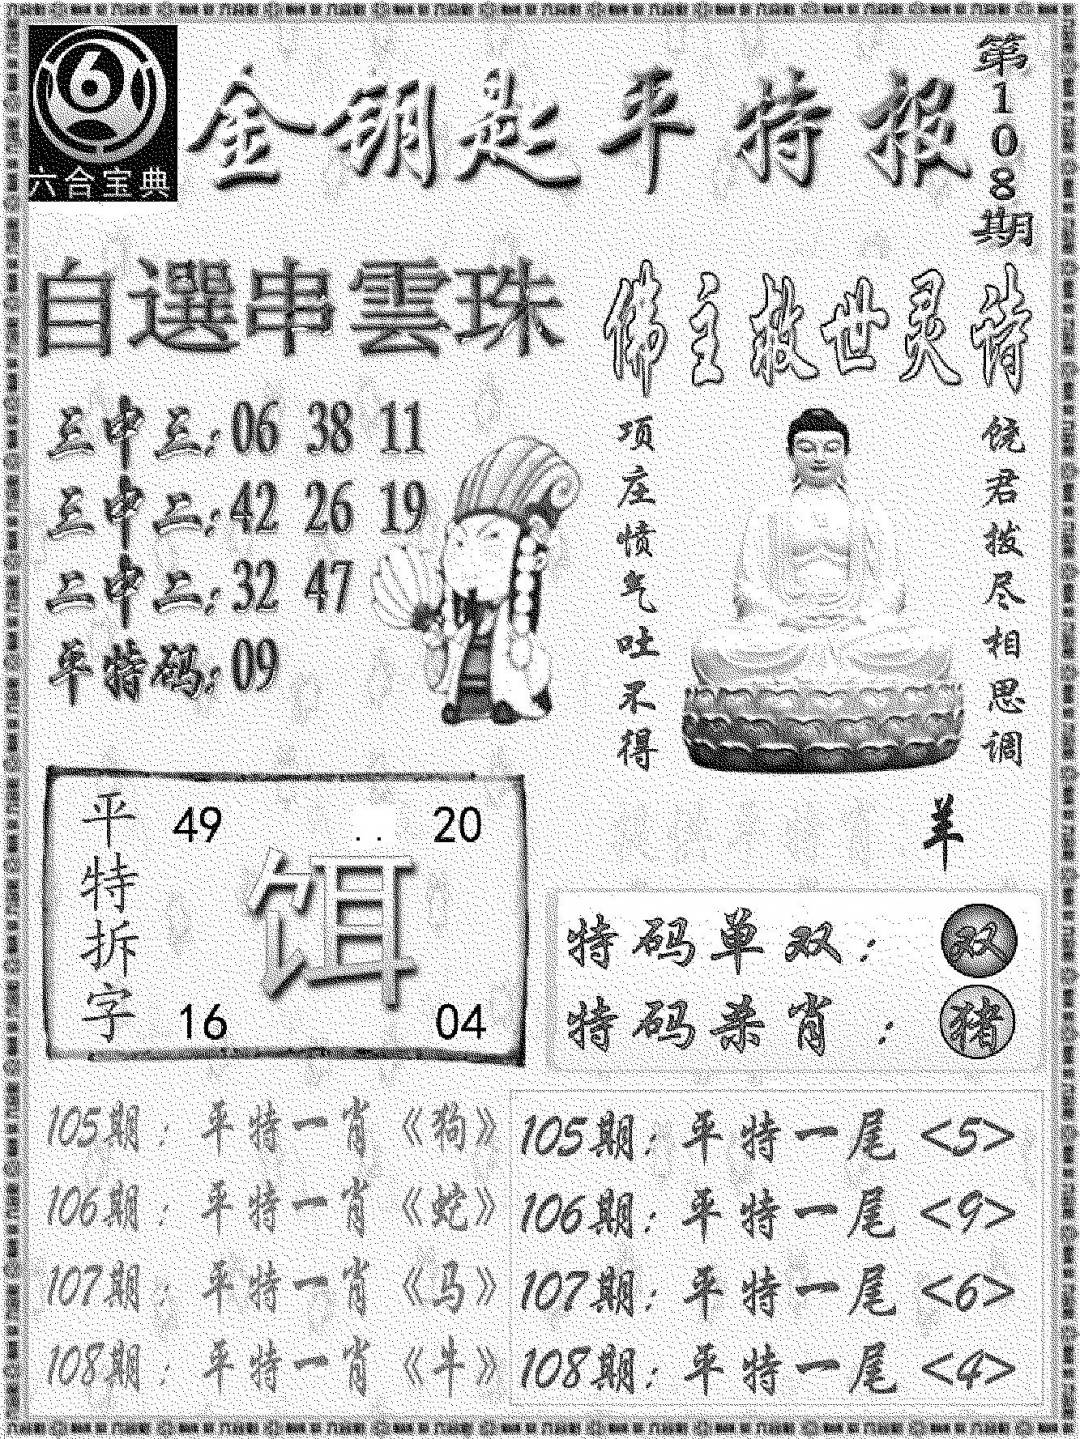 六合宝典
金钥匙平特报
第108期
自選串雲珠
三中三：06 38 11
三中二：42 26 19
二中二：32 47
平特码：09
佛主救世灵诗
饶君拔尽相思调
项庄愤气吐不得
羊
平特拆字
49 .. 20
饵
16 04
特码单双：双
特码杀肖：猪
105期：平特一肖《狗》
106期：平特一肖《蛇》
107期：平特一肖《马》
108期：平特一肖《牛》
105期：平特一尾<5>
106期：平特一尾<9>
107期：平特一尾<6>
108期：平特一尾<4>